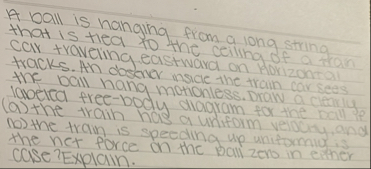 A ball is hanging from a long string
that is tied to the ceiling of a train
car traveling eastward on horizontal
tracks. An observer inside the train car sees
the ball hang motionless. Draw a clearly
labeled free-body diagram for the ball if
(a) the train has a uniform velocity, and
(b) the train is speeding up uniformly. Is
the net force on the ball zero in either
case? Explain.